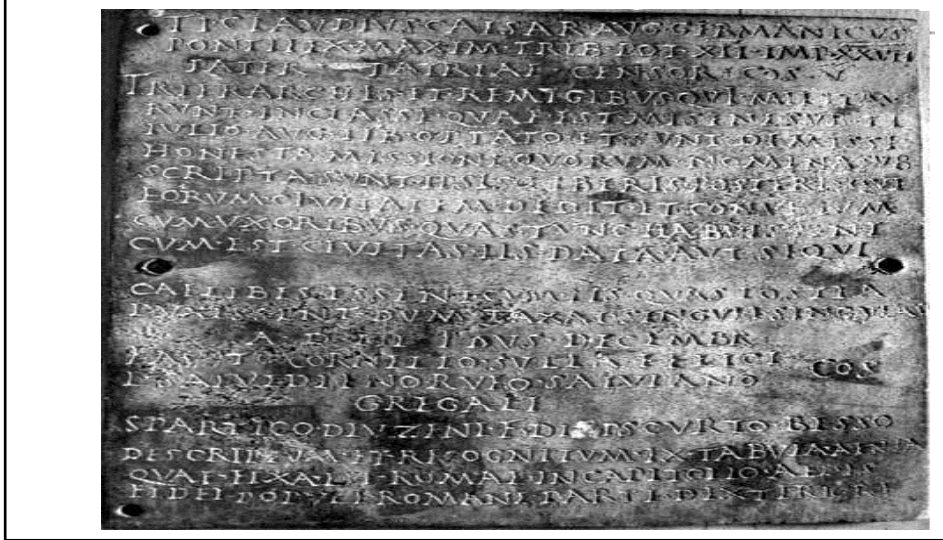 TI·CLAVDIVS·CAISAR·AVG·GERMANICVS
PONTIFEX·MAXIM·TRIB·POT·XII·IMP·XXVII
PATER PATRIAE CENSOR·COS·V
TRIERARCHIS·ET·REMIGIBVS·QVI·MILITA
VERVNT·IN·CLASSE·QVAE·EST·MISENI·SVB·TI
IVLIO·AVG·LIB·OPTATO·ET·SVNT·DIMISSI
HONESTA·MISSIONE·QVORVM·NOMINA·SVB
SCRIPTA·SVNT·IPSIS·LIBERIS·POSTERISQVE
EORVM·CIVITATEM·DEDIT·ET·CONVBIVM
CVM·VXORIBVS·QVAS·TVNC·HABVISSENT
CVM·EST·CIVITAS·IIS·DATA·AVT·SIQVI
CAELIBES·ESSENT·CVM·IIS·QVAS·POSTEA
DVXISSENT·DVM·TAXAT·SINGVLI·SINGVLAS
A D IDVS DECEMBR
FAVSTO·CORNELIO·SVLLA·FELICE
COS
L·SALVIDIENO·RVFO·SALVIANO
GREGALI
SPARTICO·DIVZENI·F· BESSO
DESCRIPTVM·ET·RECOGNITVM·EX·TABVLA·AENEA
QVAE·FIXA·EST·ROMAE·IN·CAPITOLIO·AEDIS
FIDEI·POPVLI·ROMANI·PARTE·DEXTERIORE